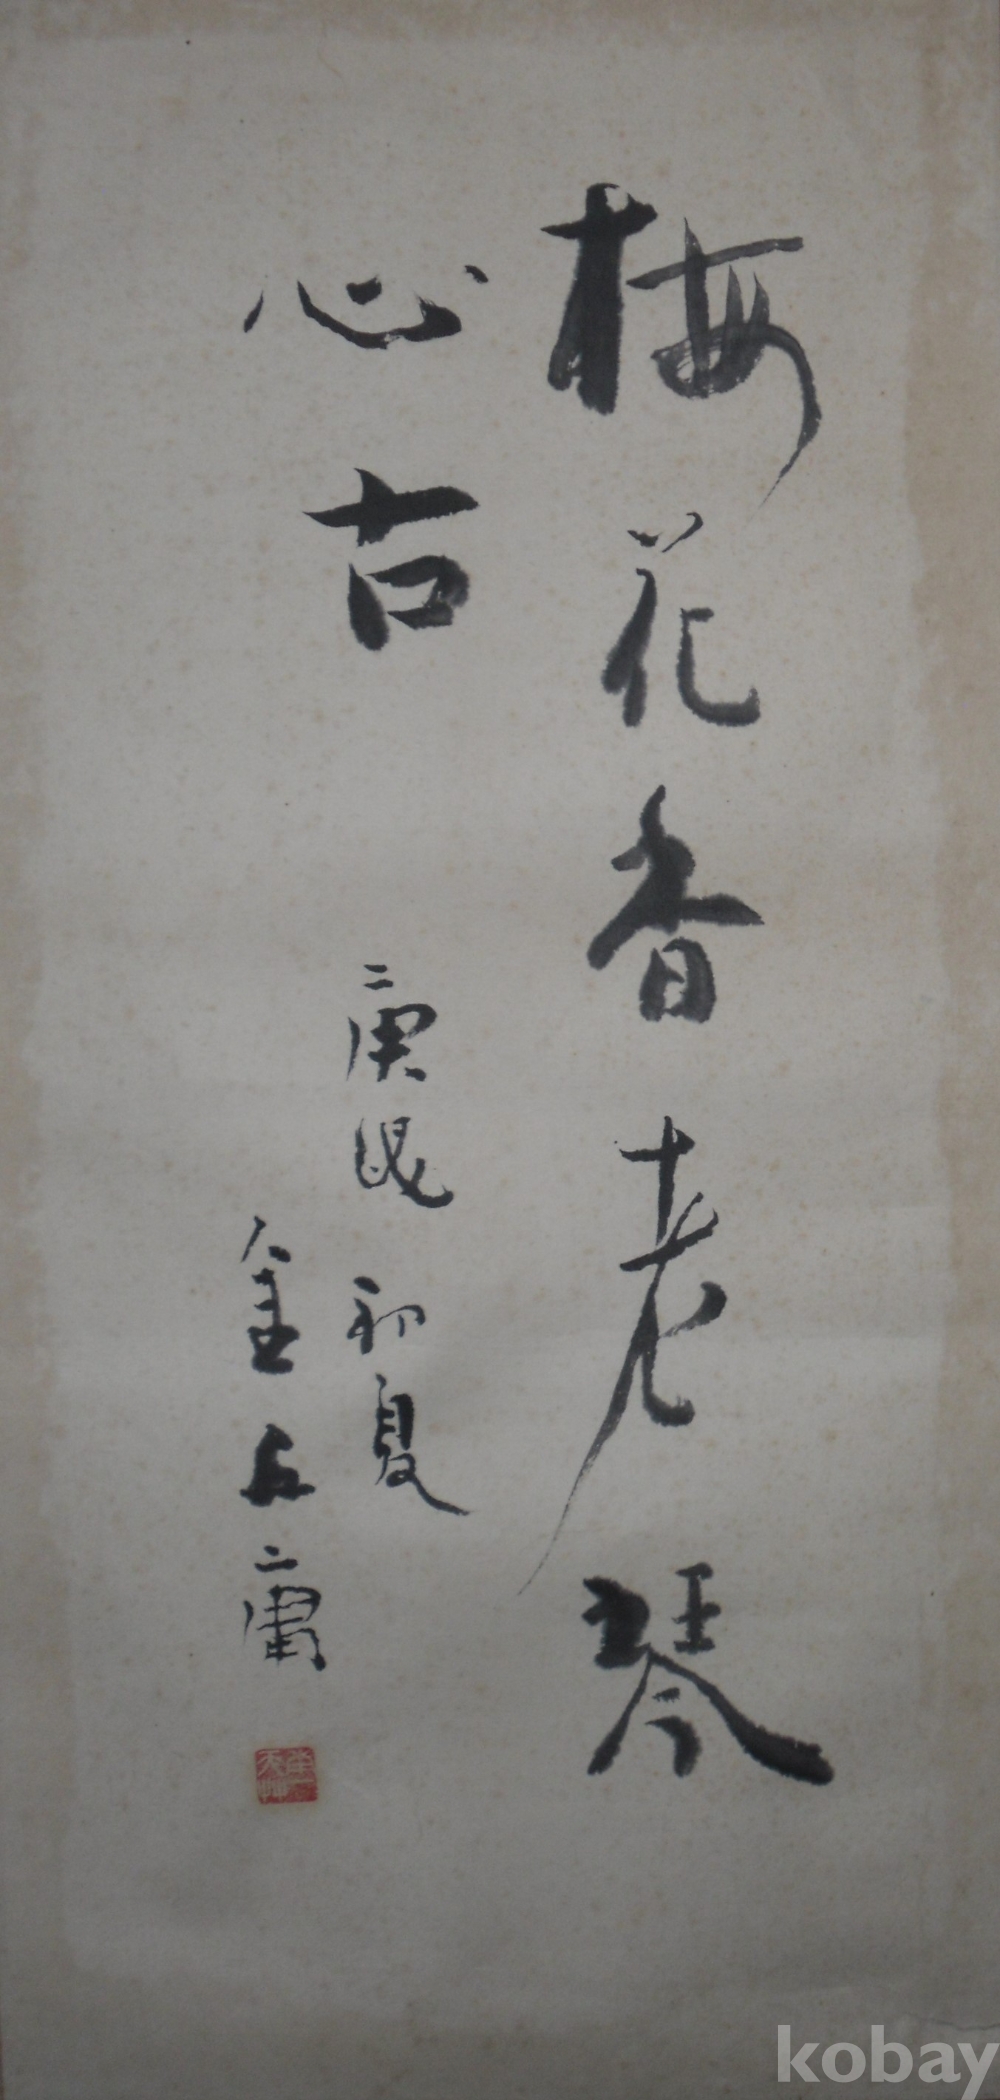 梅花香老琴
心古
庚 初夏
金丘庸
kobay